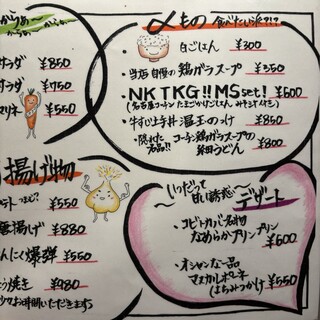 サラダ ¥850
サラダ ¥750
¥550
〆もの
白ごはん ¥300
・当店自慢の鶏ガラスープ ¥350
・NKTKG!!MSset! ¥600
(名古屋コーチンたまごかけごはん みそ汁付き)
・牛すじ丼 温玉のっけ ¥850
・隠れた名品!! コーチン鶏ガラスープの細うどん ¥800
揚げ物
¥550
唐揚げ ¥880
にんにく爆弾 ¥550
焼き ¥980
お時間いただきます
〜いつだって甘い誘惑〜
デザート
・コビトカバ名物
なめらかプリンプリン
¥600
・オシャンな一品
マスカルポーネ
(はちみつがけ) ¥550